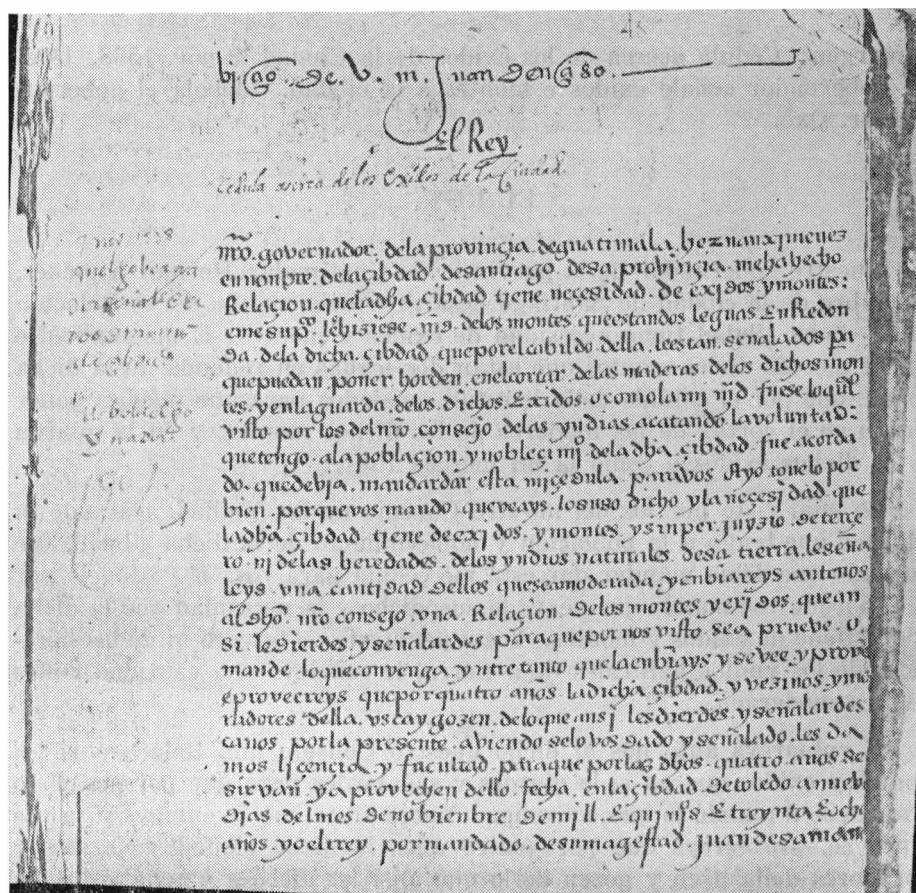 El Rey
Cedula acerca de los exidos de la Ciudad.
nro. governador. dela provinçia. de guatimala, hernan ximenez
en nonbre. dela çibdad. de santiago. desa. provinçia. me ha hecho
Relaçion. que la dha çibdad tiene neçesidad. de exidos y montes:
e me supco. le hiziese. mrd. delos montes que estan dos leguas En Redon
da. dela dicha. çibdad que por el cabildo della. le estan. señalados pa
que puedan poner horden. en el cortar. delas maderas. delos dichos mon
tes. y en la guarda. delos. dichos. Exidos. o como la mi mrd. fuese lo qul
visto por los del nro. consejo delas yndias. acatando la voluntad:
que tengo. ala poblaçion. y nobleçimio dela dha çibdad. fue acorda
do. que debia. mandar dar esta mi çedula. para vos E yo tovelo por
bien. por que vos mando que veays. lo suso dicho y la neçesidad que
la dha. çibdad tiene de exidos. y montes y sin perjuyzio de terçe
ro. ni delas heredades. delos yndios naturales. desa tierra. le seña
leys vna cantidad dellos que sea moderada. y enbiareys ante nos
al dho. nro consejo. vna. Relaçion. delos montes y exidos. que an
si. le dierdes. y señalardes para que por nos visto. se aprueve. o.
mande. lo que convenga. y ntre tanto que la enbiays y se vee. y provee
e proveereys que por quatro años. la dicha. çibdad. y vezinos. y mo
radores della. vse y gozen. delo que ansi les dierdes. y señalardes
ca nos. por la presente. aviendo selo vos dado y señalado. les da
mos liçençia. y facultad para que por los dhos. quatro años se
sirvan y aprovechen dello. fecha. en la çibdad de toledo a nueve
dias. del mes de nobienbre de mill. E quios E treynta E ocho
años. yo el rey. por mandado. de su magestad. juan de saman